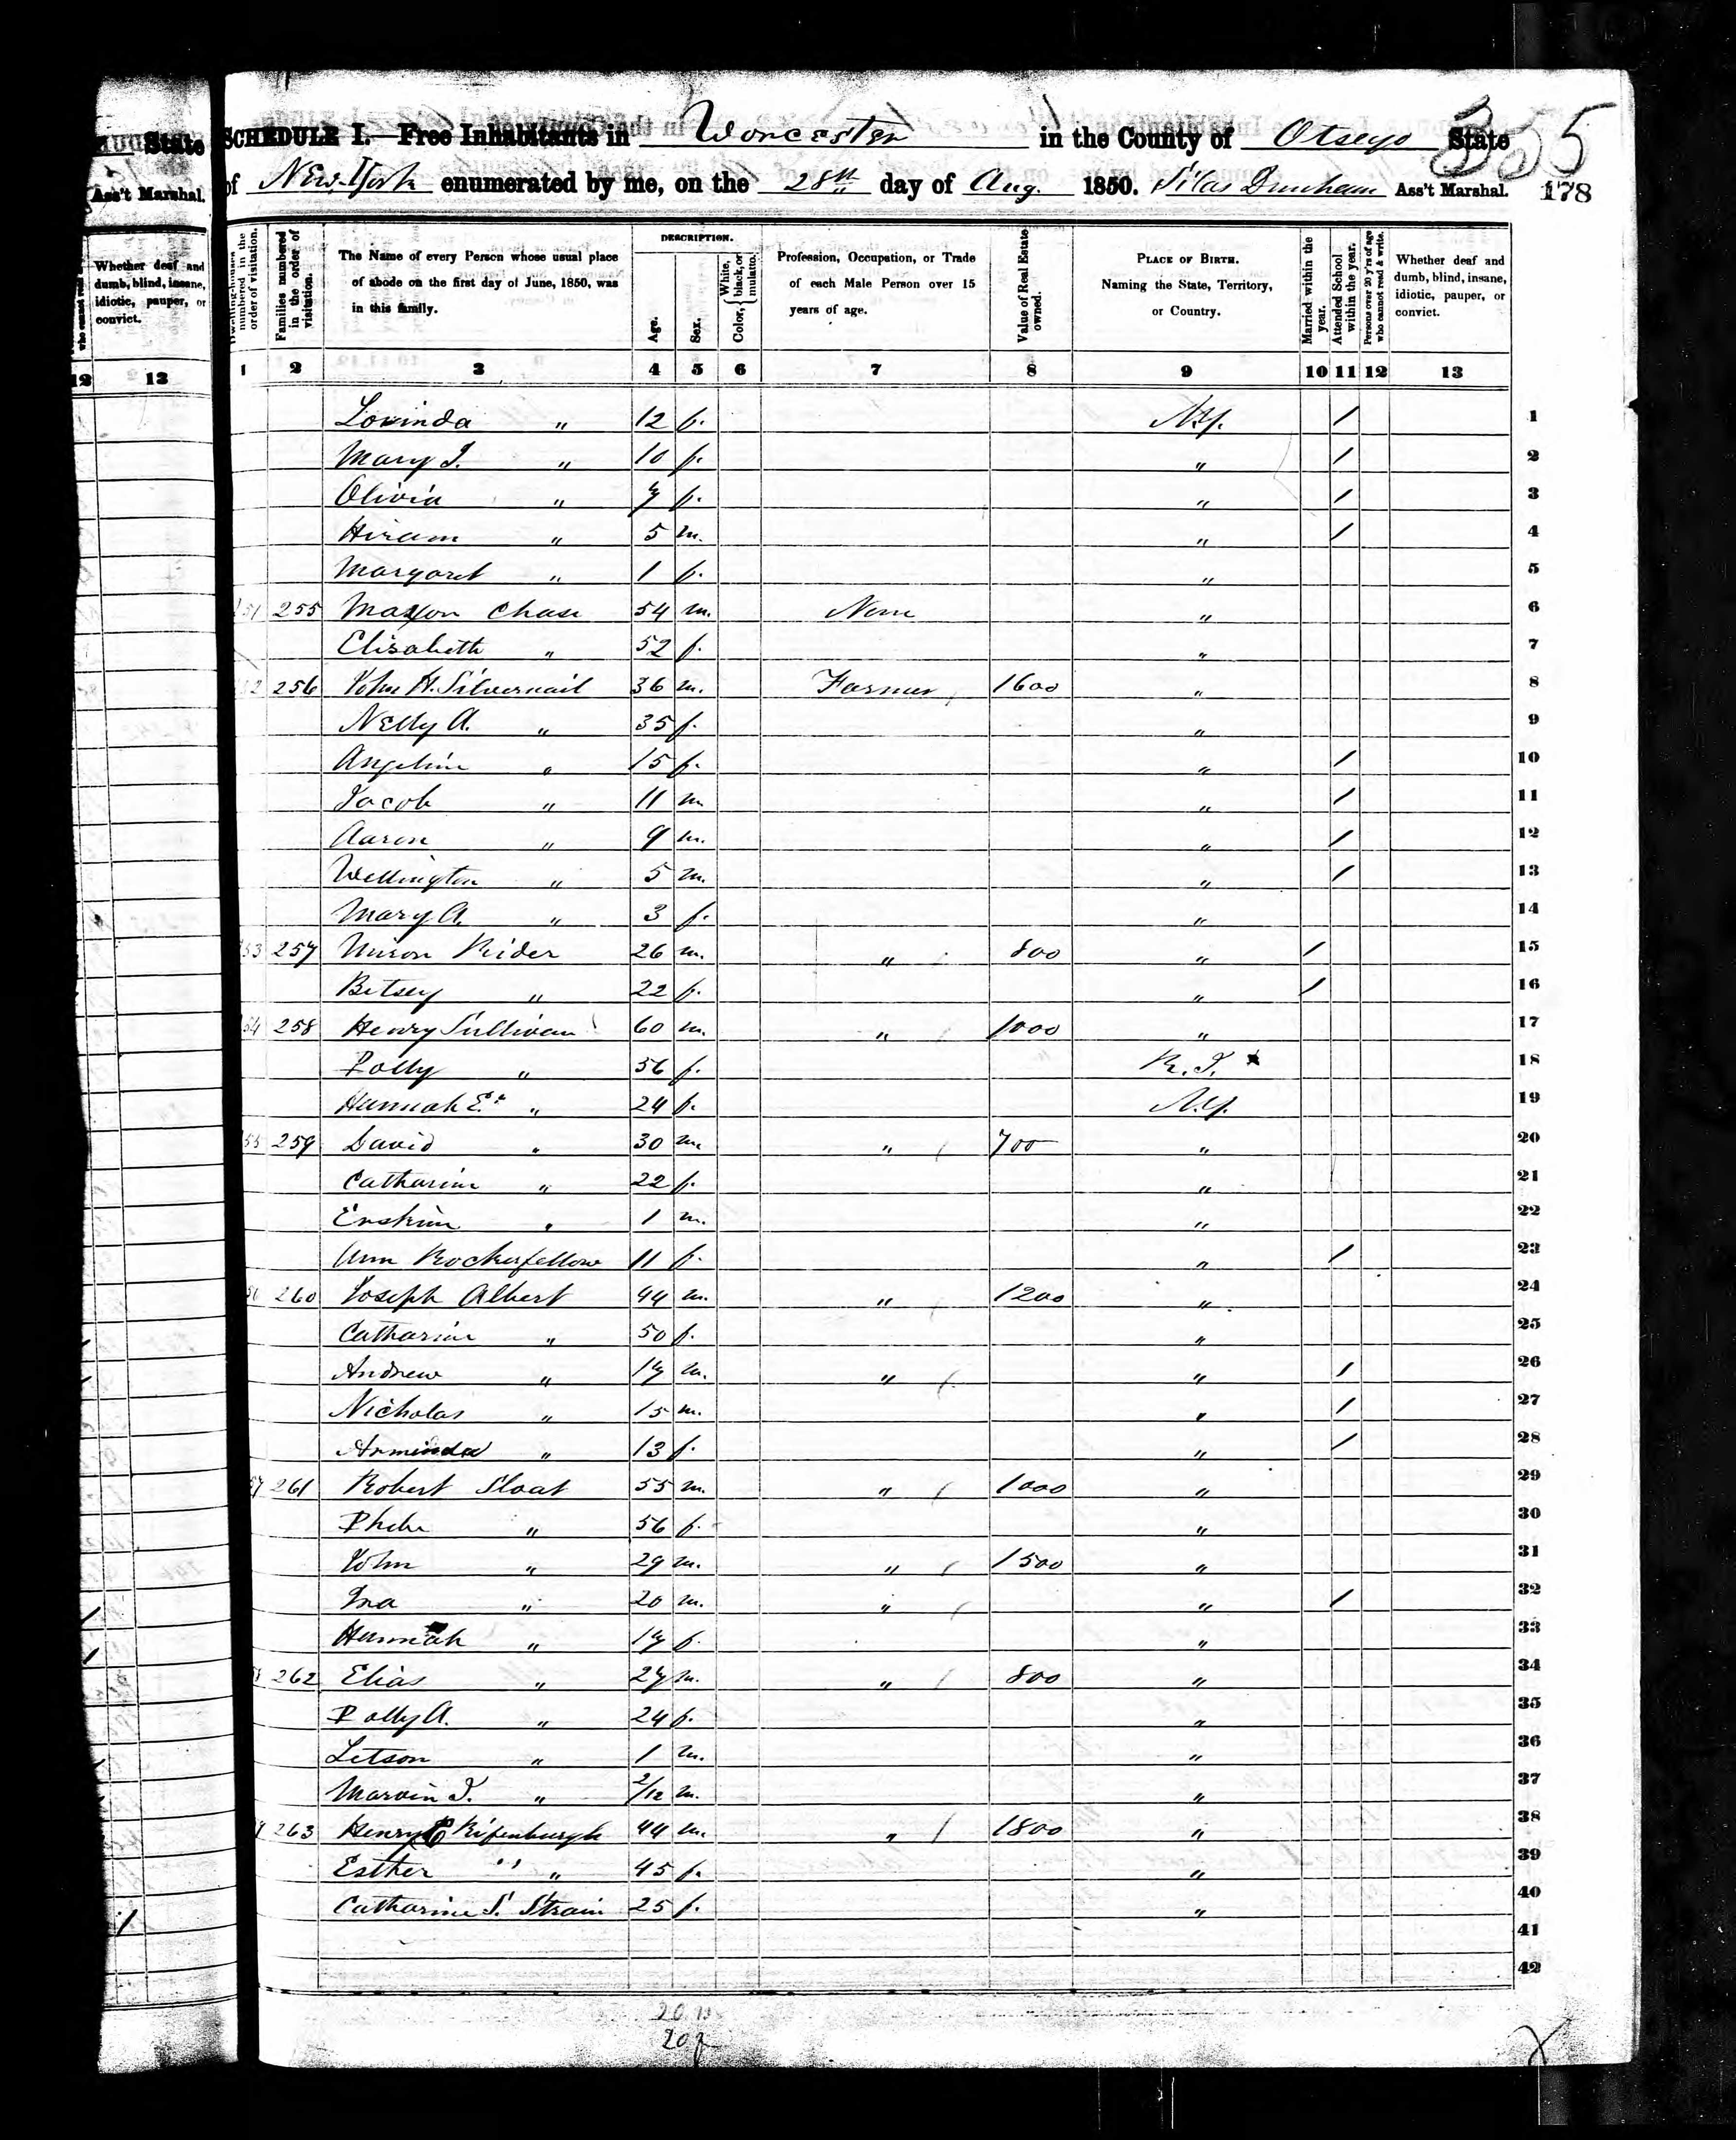 State
Ass't Marshal.
Whether deaf and
dumb, blind, insane,
idiotic, pauper, or
convict.
12 13
355
SCHEDULE I.—Free Inhabitants in Worcester in the County of Otsego State
of New York enumerated by me, on the 28th day of Aug. 1850. Silas Dunham Ass't Marshal.
178
Dwelling-houses numbered in the order of visitation.
Families numbered in the order of visitation.
The Name of every Person whose usual place of abode on the first day of June, 1850, was in this family.
DESCRIPTION.
Age.
Sex.
Color, { White, black, or mulatto. }
Profession, Occupation, or Trade of each Male Person over 15 years of age.
Value of Real Estate owned.
PLACE OF BIRTH. Naming the State, Territory, or Country.
Married within the year.
Attended School within the year.
Persons over 20 y'rs of age who cannot read & write.
Whether deaf and dumb, blind, insane, idiotic, pauper, or convict.
1 2 3 4 5 6 7 8 9 10 11 12 13
Lovinda " 12 f. N.Y. / 1
Mary J. " 10 f. " / 2
Olivia " 7 f. " / 3
Hiram " 5 m. " / 4
Margaret " 1 f. " 5
255 Maxon Chase 54 m. None " 6
Elisabeth " 52 f. " 7
256 John H. Silvernail 36 m. Farmer 1600 " 8
Nelly A. " 35 f. " 9
Angeline " 15 f. " / 10
Jacob " 11 m " / 11
Aaron " 9 m. " / 12
Wellington " 5 m. " / 13
Mary A. " 3 f. " 14
257 Rider 26 m. " 800 " / 15
Betsey " 22 f. " / 16
258 Henry Sullivan 60 m. " 1000 " 17
Polly " 56 f. R.I. 18
Hannah E. " 24 f. N.Y. 19
259 David " 30 m. " 700 " 20
Catharine " 22 f. " 21
Erskine " 1 m. " 22
Ann Rockerfellow 11 f. " / 23
260 Joseph Albert 44 m. " 1200 " 24
Catharine " 50 f. " 25
Andrew " 17 m. " " / 26
Nicholas " 15 m. " / 27
Arminda " 13 f. " / 28
261 Robert Sloat 55 m. " 1000 " 29
Phebe " 56 f. " 30
John " 29 m. " 1500 " 31
Ira " 20 m. " " / 32
Hannah " 17 f. " 33
262 Elias " 27 m. " 800 " 34
Polly A. " 24 f. " 35
Letson " 1 m. " 36
Marvin J. " 2/12 m. " 37
263 Henry Rifenburgh 44 m. " 1800 " 38
Esther " " 45 f. " 39
Catharine S. Strain 25 f. " 40
41
42
20 m
20 f